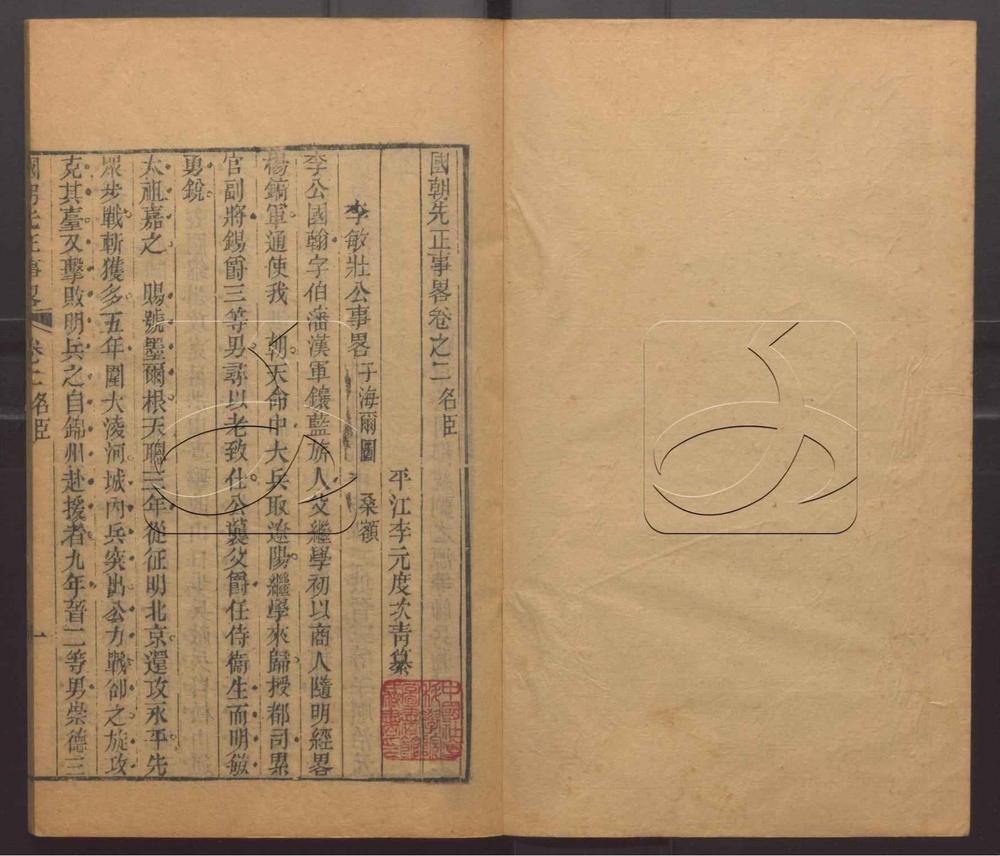 國朝先正事畧卷之二 名臣
平江李元度次靑纂
李敏壯公事畧 子海爾圖 桑額
李公國翰字伯藩漢軍鑲藍旗人父繼學初以商人隨明經畧
楊鎬軍通使我 朝天命中大兵取遼陽繼學來歸授都司累
官副將錫爵三等男尋以老致仕公襲父爵任侍衞生而明敏
勇銳
太祖嘉之 賜號墨爾根天聰三年從征明北京還攻永平先
眾步戰斬獲多五年圍大淩河城內兵突出公力戰卻之旋攻
克其臺又擊敗明兵之自錦州赴援者九年晉二等男崇德三
國朝先正事畧 卷二 名臣 一